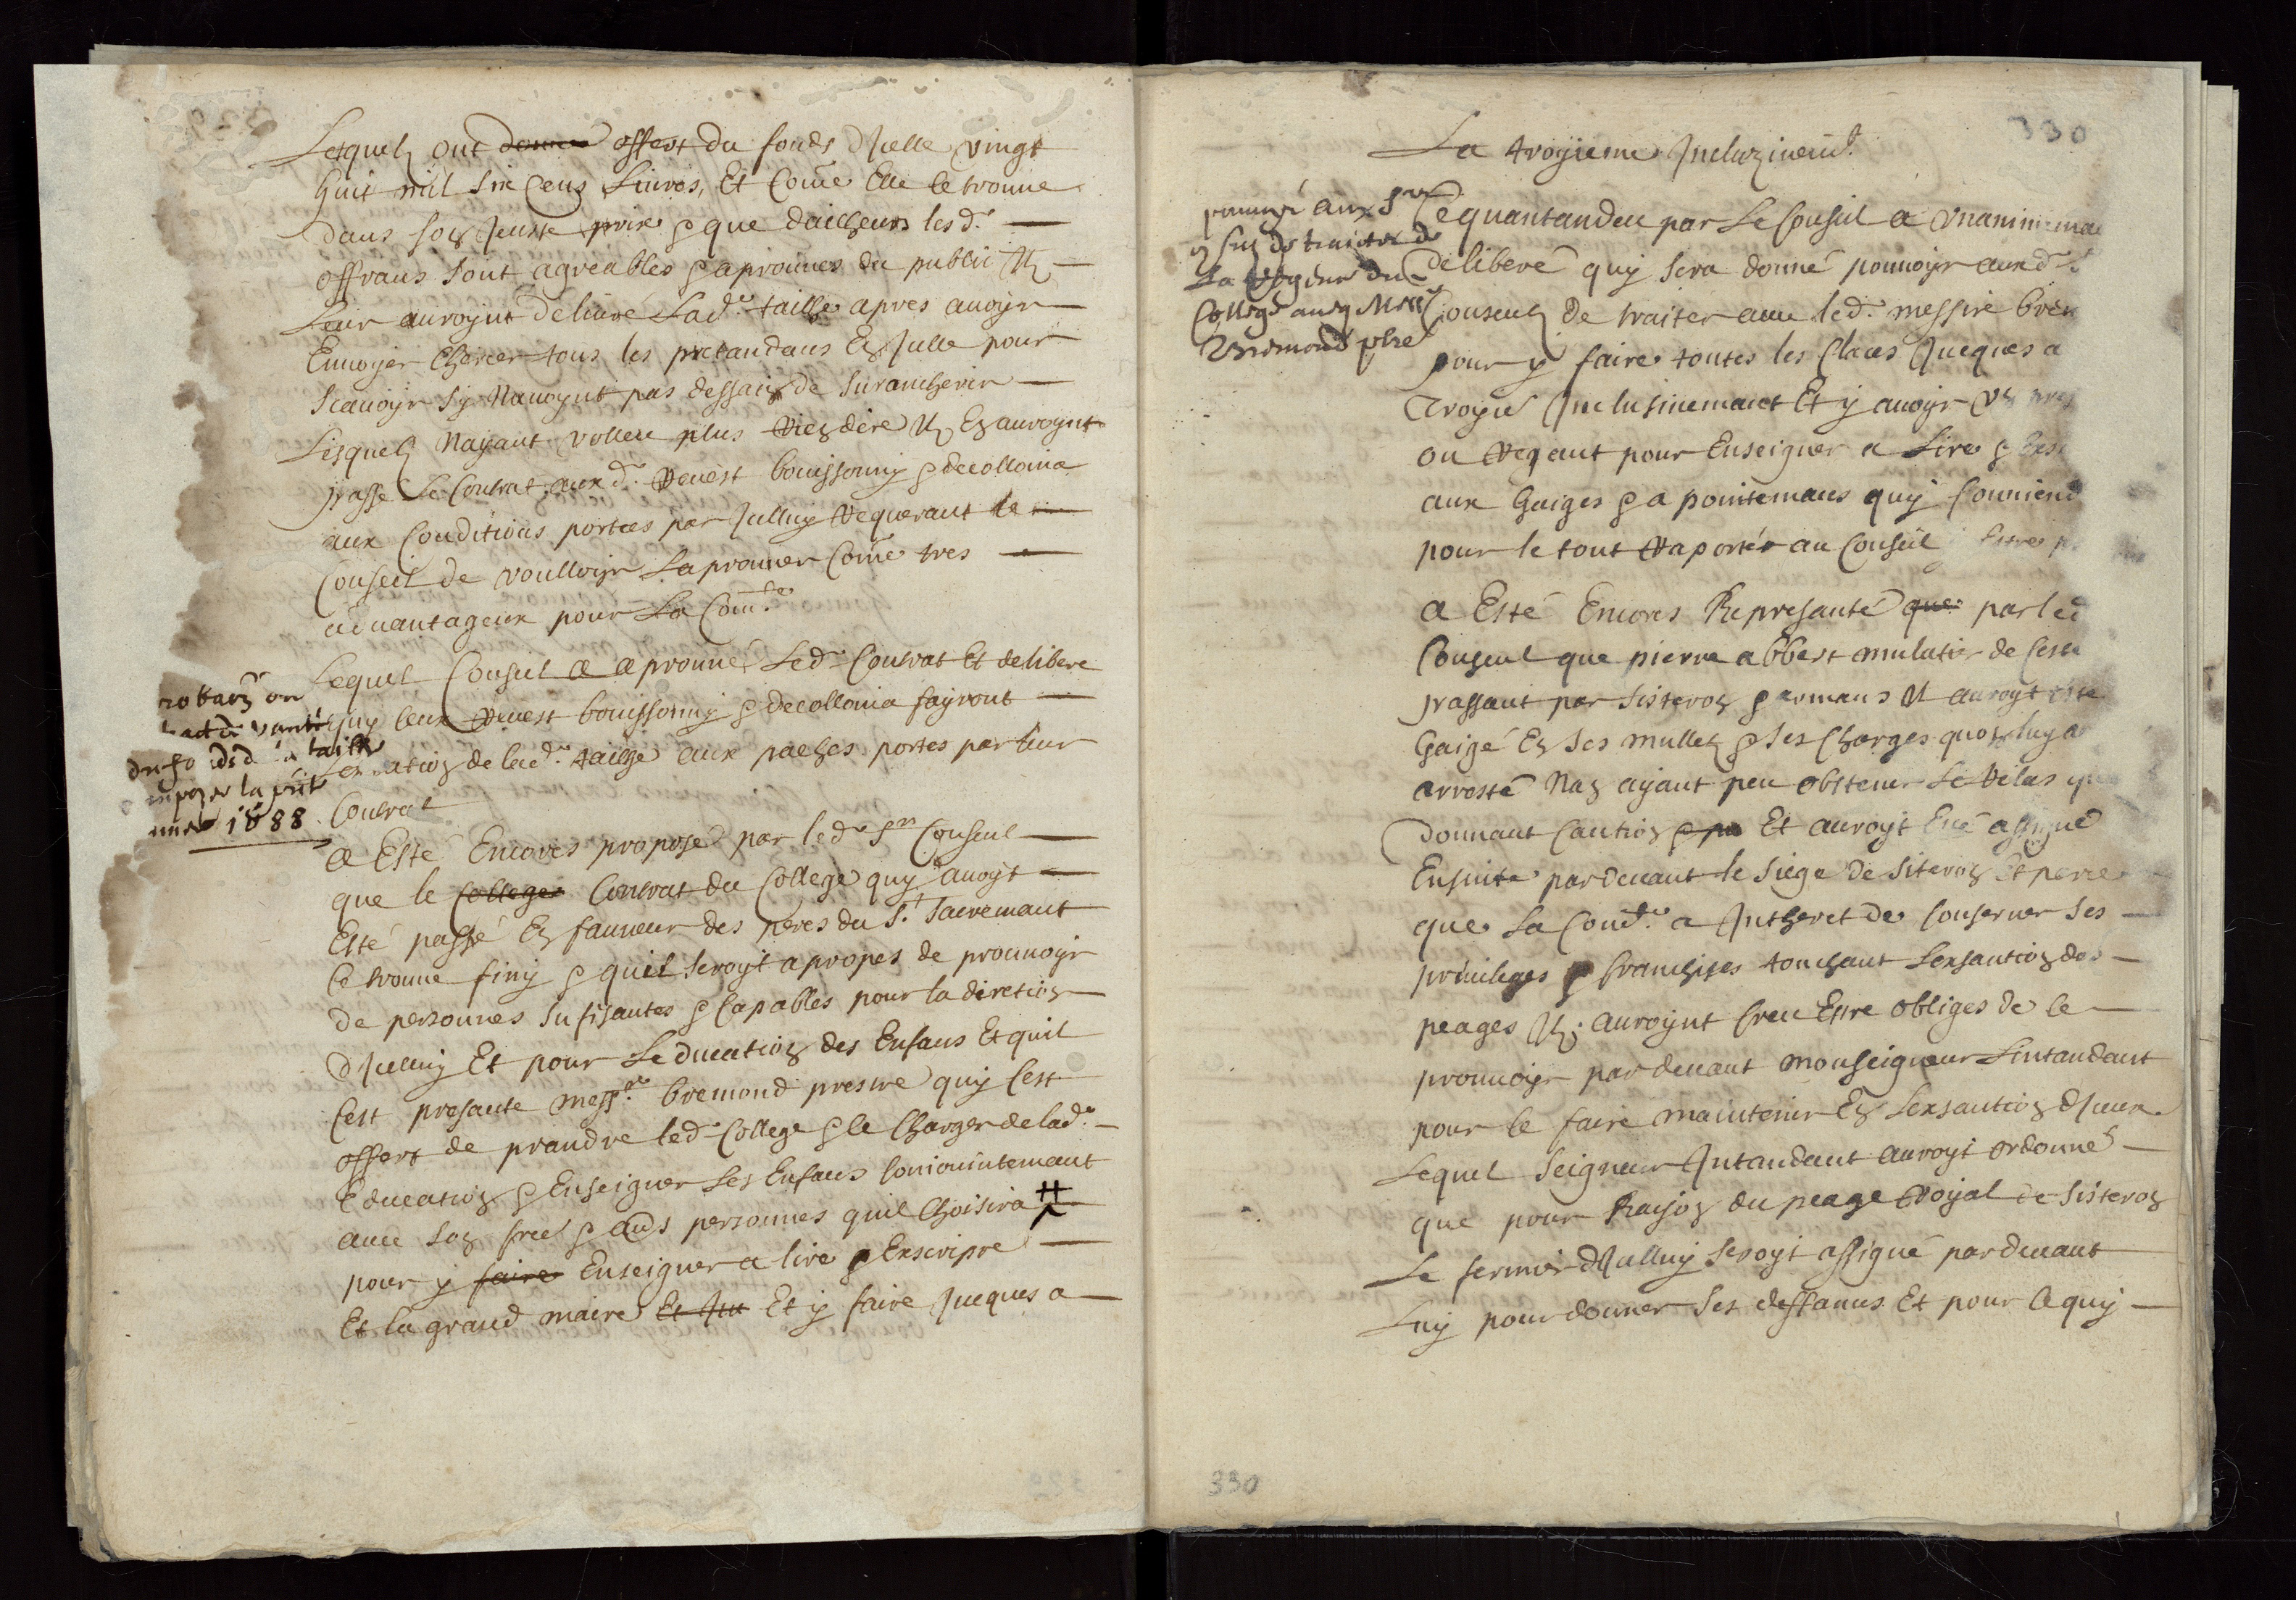 Lesquelz ont donné offert du fonds dicelle vingt
huit mil six cens livres, Et Comē Elle se trouve
dans son Jeuste prix & que dailheurs lesd.
offrans sont agreables & aprouves du publiq Ilz
Leur auroynt deliuré Lad.e tailhe apres auoyr
Enuoyer Chercer tous les pretandans En Jcelle pour
scauoyr sy Nauoynt pas dessain de surancherir
Lesquelz Nayant vollen plus Rien dire Ilz En auroynt
passé Le Contrat aux d. Reuest bouissouny & decollonia
aux Conditions portees par Jcelluy Requerant le
Conseil de voulloyr Laprouuer Comē tres
aduantageux pour La Com.té
Lequel Conseil a aprouué Led. Contrat Et delibere
quy ceux Reuest bouissouny & decollonia fayront
de lad.e tailhe aux paches portes par leur
Contrat
1688
A Esté Encores proposé par led. Sr Conseul
que le College Contrat du College quy auoyt
Esté passé En faueur des peres du St Sacremant
se trouue finy & quil seroyt apropes de prouuoyr
de personnes sufisantes & Capables pour la diretion
dJcelluy Et pour Leducation des Enfans Et quil
sest presante mess.re bremond prestre quy sest
offert de prandre led. College & se Charger de lad.e
Education & Enseigner Les Enfans conioiintemant
auec son frere & aus personnes quil Choisira #
pour y faire Enseigner a lire & Enscripre
Et la grand maire Et Jus Et y faire Jucques a
330
La troysieme Jncluzivemt.
pouuoir aux Srs
de traiter de
la Regence du
College aueq Messire
Bremond ptre
Ce quantandeu par Le Conseil a vnanimema
deliberé quy sera donné pouuoyr aux d. S
Conseulz de traiter auec led. messire brem
pour y faire toutes les Claces Jucques a
Troysie Jnclusiuemant Et y auoyr vn
ou Regeant pour Enseigner a Lire &
aux Gaiges & apointemans quy Conuiend
pour le tout Raporter au Conseil
A Esté Encores Represanté que par led
Conseul que pierre abbert mulatier de Ceste
passant par sisteron & romans Il auroyt este
Gaigé En ses mulletz & ses Charges quon luy a
arresté Nan ayant peu obtenir Le Relas
donnant Caution & pa Et auroyt Eté assigné
Ensuite pardeuant le siege de siteron Et parce
que La Com.té a Jntheret de conseruer ses
priuileges & franchises touchant Lexsantion des
peages Ilz auroynt creu Estre obliges de se
prouuoyr pardeuant Monseigneur Lintandant
pour se faire maintenir En Lexsantion dJceux
Lequel seigneur Jntandant auroyt ordonné
que pour Raison du peage Royal de sisteron
Le fermier dJcelluy seroyt assigné pardeuant
Luy pour donner ses deffances Et pour Ce quy
330